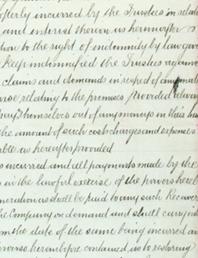 incurred by the Trustees in relation
and interest thereon as hereinafter
how to the right of indemnity by law given
keep indemnified the Trustees against
claims and demands in respect of any
relating to the premises Provided always
themselves out of any moneys in their
the amount of such costs charges and expenses
as hereafter provided
incurred and all payments made by the
in the lawful exercise of the powers
shall be paid to any such Receiver
the Company on demand and shall carry
from the date of the same being incurred or
hereinbefore contained as to restoring